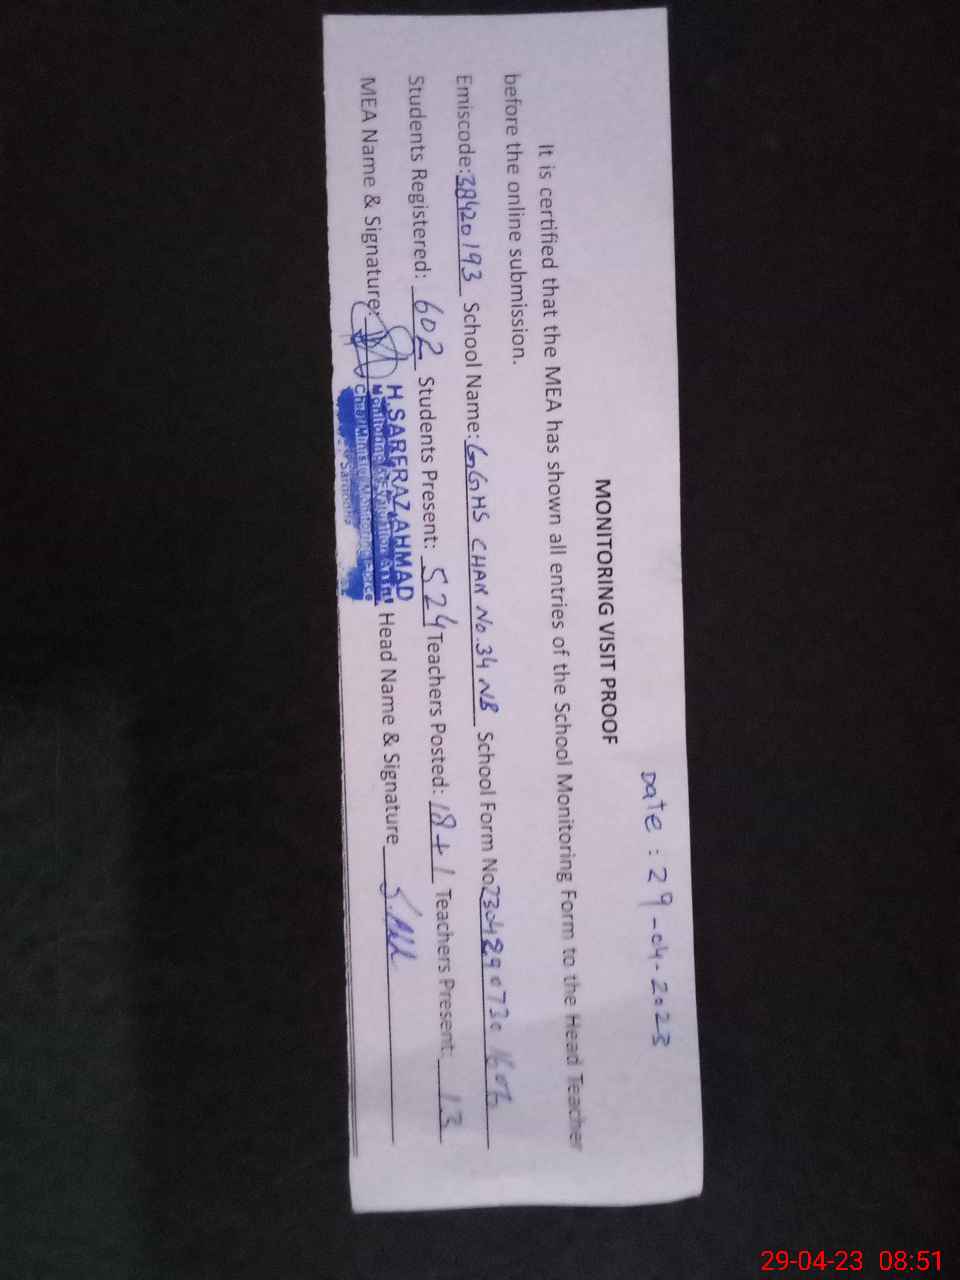 Date : 29-04-2023
MONITORING VISIT PROOF
It is certified that the MEA has shown all entries of the School Monitoring Form to the Head Teacher
before the online submission.
Emiscode: 38420193 School Name: GGHS CHAK No.34 NB School Form No 230429073
Students Registered: 602 Students Present: 524 Teachers Posted: 18 + 1 Teachers Present: 13
MEA Name & Signature: Head Name & Signature
H.SARFRAZ AHMAD
Monitoring & Evaluation
Chief Minister Monitoring Force
Sargodha
29-04-23 08:51